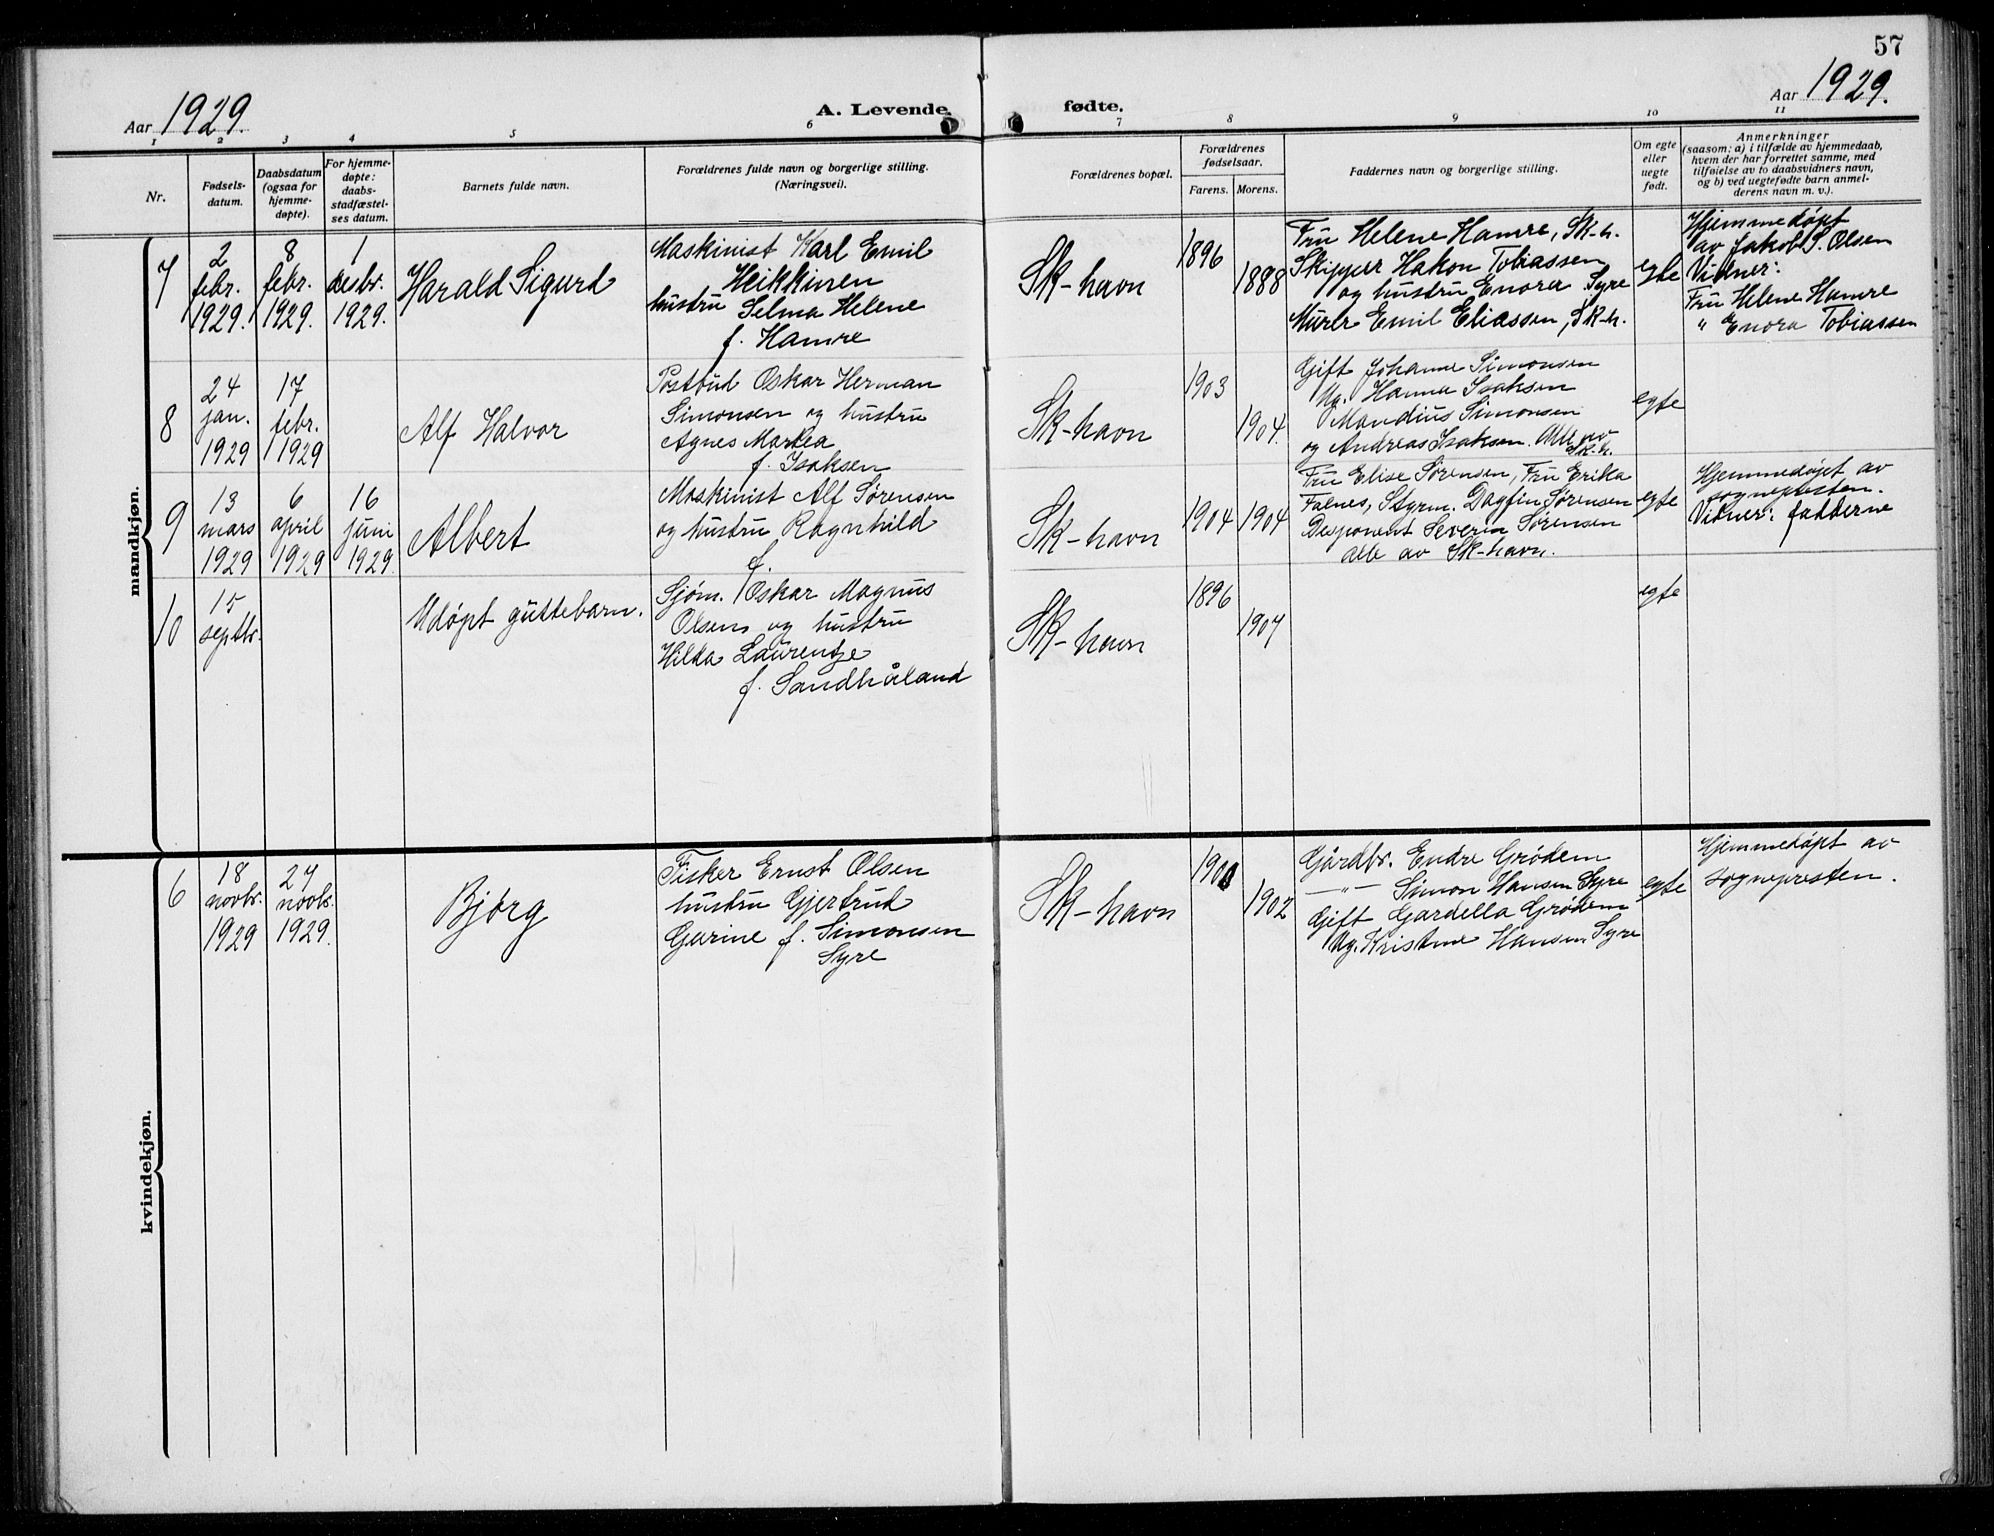 57
Aar 1929.
A. Levende
fødte.
Aar 1929.
1 2 3 4 5 6 7 8 9 10 11
Nr.
Fødsels-
datum.
Daabsdatum
(ogsaa for
hjemme-
døpte).
For hjemme-
døpte:
daabs-
stadfæstel-
ses datum.
Barnets fulde navn.
Forældrenes fulde navn og borgerlige stilling.
(Næringsvei).
Forældrenes bopæl.
Forældrenes
fødselsaar.
Farens. Morens.
Faddernes navn og borgerlige stilling.
Om egte
eller
uegte
født.
Anmerkninger
(saasom: a) i tilfælde av hjemmedaab,
hvem der har forrettet samme, med
tilføielse av to daabsvidners navn,
og b) ved uegtefødte barn anmel-
derens navn m. v.).
mandkjøn.
7
2
febr.
1929.
8
febr.
1929.
1
desbr.
1929.
Harald Sigurd
Maskinist Karl Emil
Heikkinen
hustru Selma Helene
f. Hamre
Sk-havn
1896
1888
Fru Helene Hamre, Sk-h.
Skipper Hakon Tobiassen
og hustru Enora Syre
Murer Emil Eliassen, Sk-h.
egte
Hjemmedøpt
av Jakob S. Olsen
Vidner:
Fru Helene Hamre
" Enora Tobiassen
8
24
jan.
1929
17
febr.
1929
Alf Halvor
Postbud Oskar Herman
Simonsen og hustru
Agnes Martea
f. Isaksen
Sk-havn
1903
1904.
Gift Johanne Simonsen
Ug. Hanna Isaksen
Mandius Simonsen
og Andreas Isaksen. Alle av
Sk-h.
egte
9
13
mars
1929
6
april
1929
16
juni
1929.
Albert
Maskinist Alf Sørensen
og hustru Ragnhild
f.
Sk-havn
1904 1904
Fru Elise Sørensen, Fru Erika
Falnes, Styrm. Dagfin Sørensen
Desponent Severin Sørensen
alle av Sk-havn.
egte
Hjemmedøpt av
sognepresten.
Vidner: fadderne
10
15
septbr.
Udøpt guttebarn.
Sjøm. Oskar Magnus
Olsen og hustru
Hilda Laurentse
f. Sandhåland
Sk-havn
1896
1907
egte
kvindekjøn.
6
18
novbr.
1929
27
novbr.
1929.
Bjørg
Fisker Ernst Olsen
hustru Gjertrud
Gurine f. Simonsen
Syre
Sk-havn
1902
Gårdbr. Endre Grødem
—"— Simon Hansen Syre
Gift Gardella Grødem
Ug. Kristine Hansen Syre
egte
Hjemmedøpt av
sognepresten.